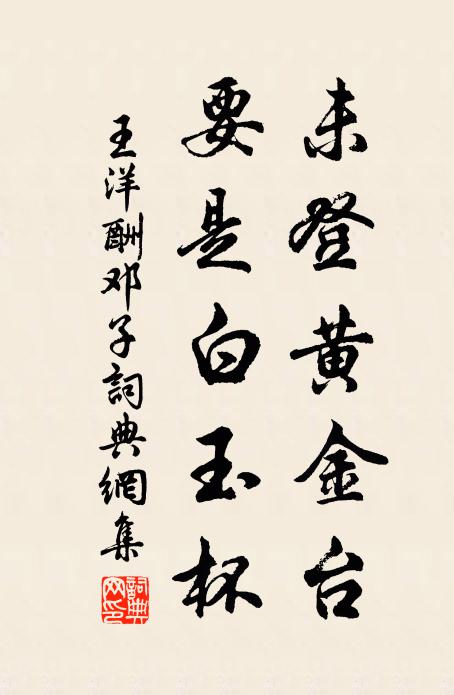 未登黄金台
要是白玉杯
王洋酬邓子詞典網集
詞典網印